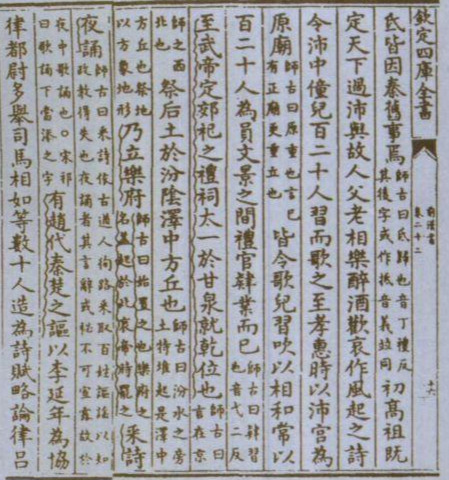 欽定四庫全書
前漢書
卷二十二
十六
氐皆因秦舊事焉師古曰氐歸也音丁禮反其後字或作抵音義竝同初高祖既
定天下過沛與故人父老相樂醉酒歡哀作風起之詩
令沛中僮兒百二十人習而歌之至孝惠時以沛宮為
原廟師古曰原重也言已有正廟更重立也皆令歌兒習吹以相和常以
百二十人為員文景之間禮官肄業而已師古曰肄習也音弋二反
至武帝定郊祀之禮祠太一於甘泉就乾位也師古曰言在京
師之西北也祭后土於汾陰澤中方丘也師古曰汾水之旁土特堆起是澤中
方丘也祭地以方象地形乃立樂府師古曰始置之也樂府之名蓋起於此哀帝時罷之采詩
夜誦師古曰采詩依古遒人徇路采取百姓謳謡以知政教得失也夜誦者其言辭或秘不可宣露故於
夜中歌誦也○宋祁曰歌誦下當添之字有趙代秦楚之謳以李延年為協
律都尉多舉司馬相如等數十人造為詩賦略論律呂